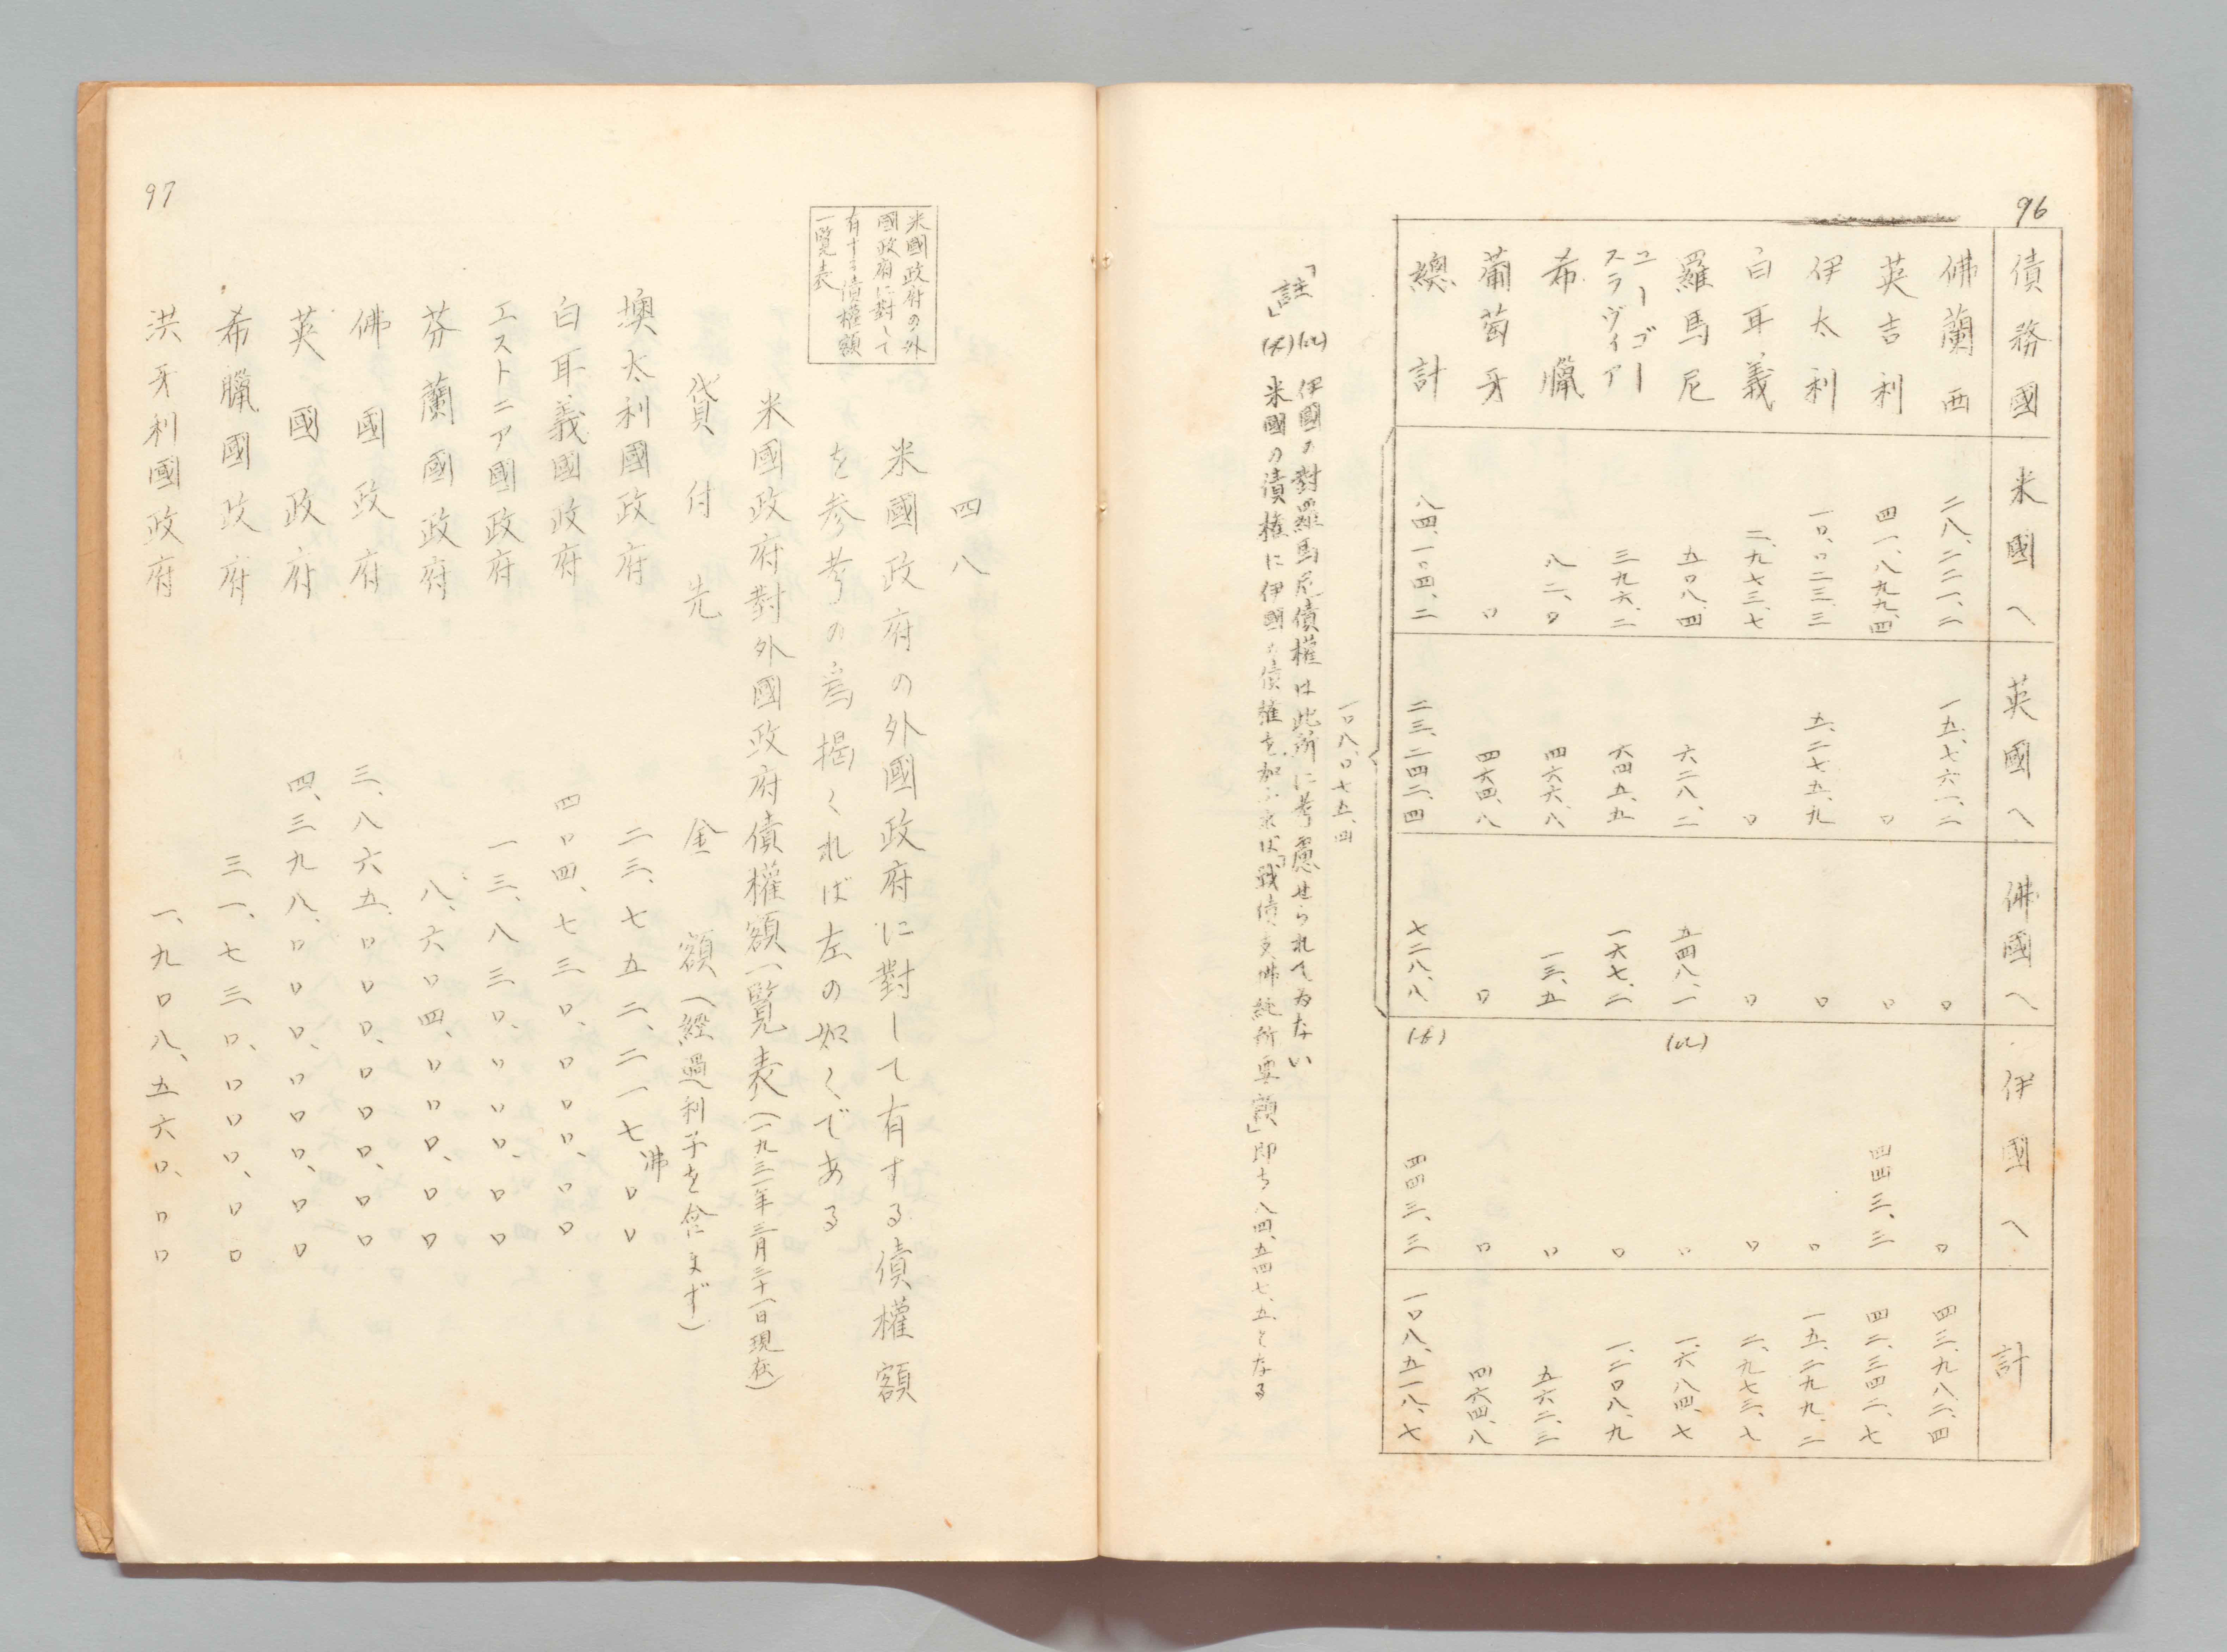 96
債務國 米國へ 英國へ 佛國へ 伊國へ 計
佛蘭西 二八、二二一、二 一五、七六一、二 〇 〇 四三、九八二、四
英吉利 四一、八九九、四 〇 〇 四四三、三 四二、三四二、七
伊太利 一〇、〇二三、三 五、二七五、九 〇 〇 一五、二九九、二
白耳義 二、九七三、七 〇 〇 〇 二、九七三、七
羅馬尼 五〇八、四 六二八、二 五四八、一 (に) 〇 一、六八四、七
ユーゴースラヴィア 三九六、二 六四五、五 一六七、二 〇 一、二〇八、九
希臘 八二、〇 四六六、八 一三、五 〇 五六二、三
葡萄牙 〇 四六四、八 〇 〇 四六四、八
總計 八四、一〇四、二 二三、二四二、四 七二八、八 (ほ) 四四三、三 一〇八、五一八、七
一〇八、〇七五、四
「註」(に) 伊國の對羅馬尼債權は此所に考慮せられてゐない
(ほ) 米國の債權に伊國の債權を加ふれば「戰債支佛純所要額」即ち八四、五四七、五、となる
四八
米國政府の外
國政府に對して
有する債權額
一覽表
米國政府の外國政府に對して有する債權額
を参考の爲揭くれば左の如くである
米國政府對外國政府債權額一覽表(一九三一年三月三十一日現在)
貸付先 金額(經過利子を含まず)
墺太利國政府 二三、七五二、二一七弗〇〇
白耳義國政府 四〇四、七三〇、〇〇〇、〇〇
エストニア國政府 一三、八三〇、〇〇〇、〇〇
芬蘭國政府 八、六〇四、〇〇〇、〇〇
佛國政府 三、八六五、〇〇〇、〇〇〇、〇〇
英國政府 四、三九八、〇〇〇、〇〇〇、〇〇
希臘國政府 三一、七三〇、〇〇〇、〇〇
洪牙利國政府 一、九〇八、五六〇、〇〇
97